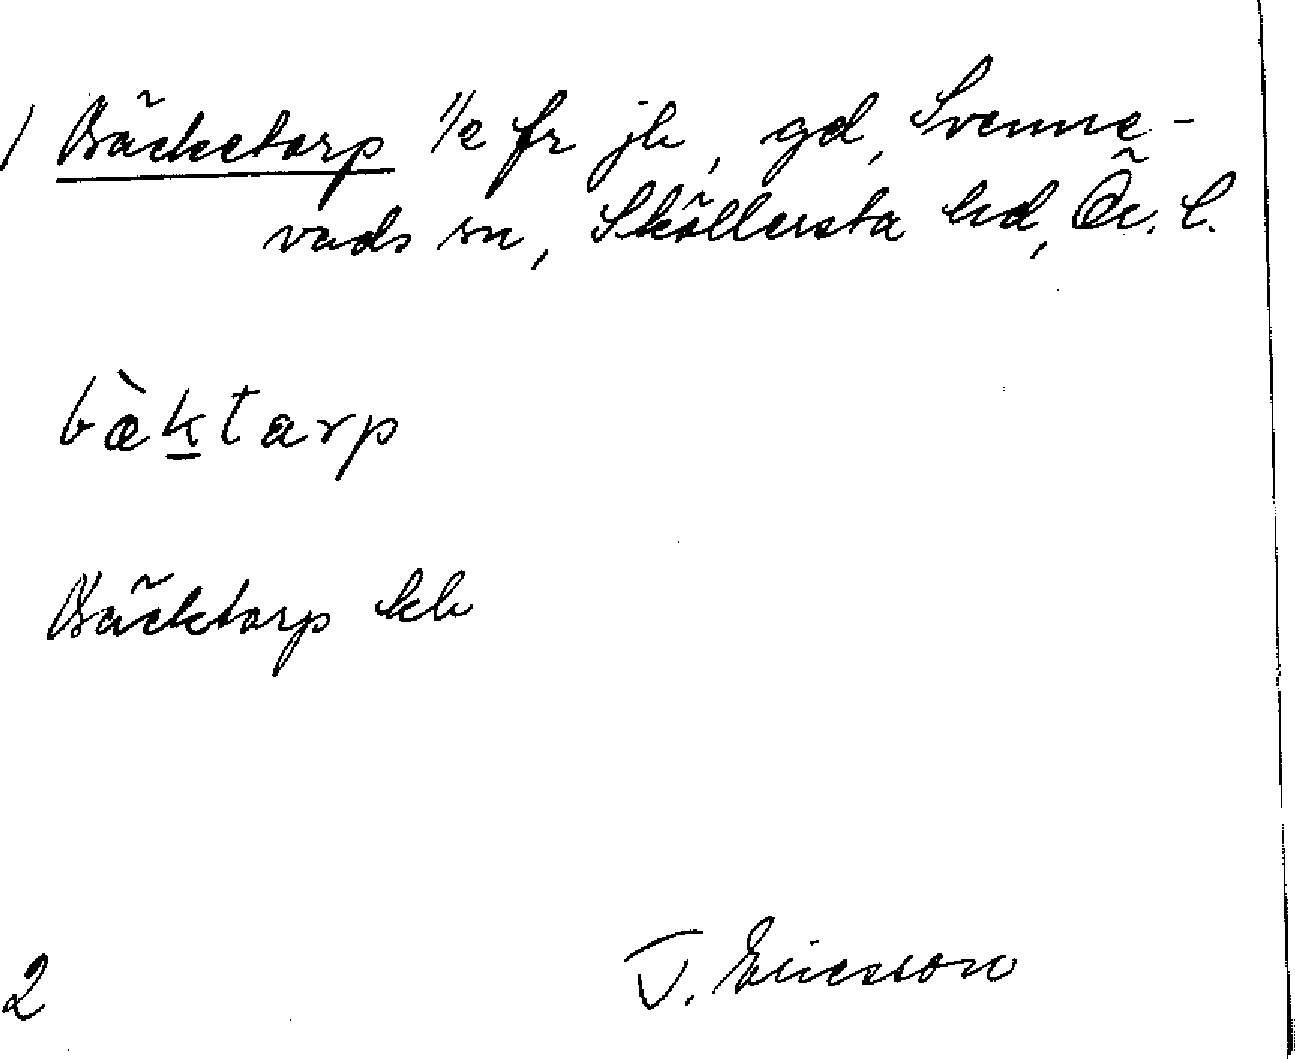 / Bäcketorp 1/2 fr jb, gd, Svenne-
vads sn, Sköllersta hd, Ör. l.
bæ̀ḵtarp
Bäcktorp kb
2
J. Ericsson